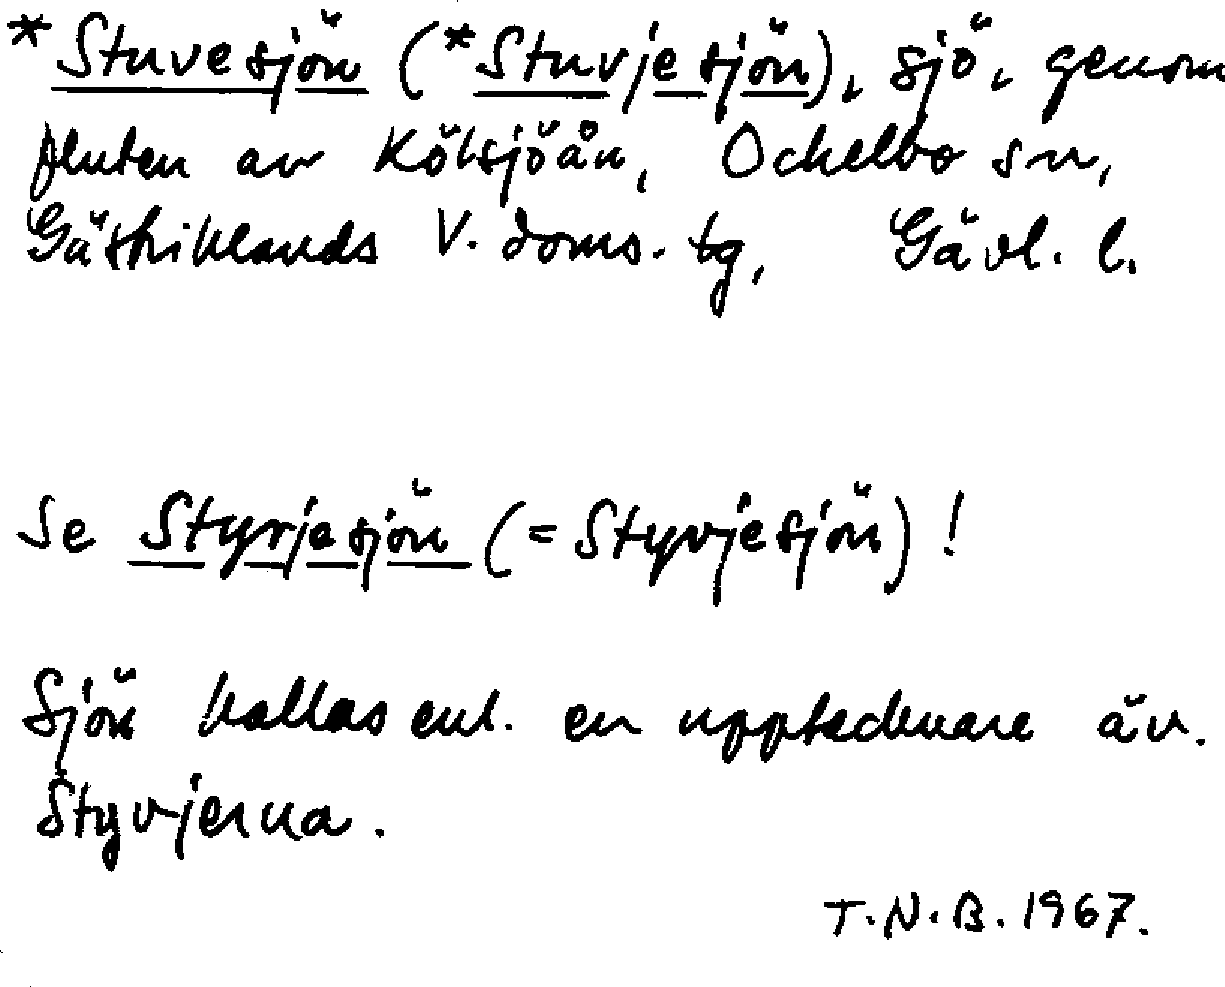 *Stuvesjön (*Stuvjesjön), sjö, genom
fluten av Kölsjöån, Ockelbo sn,
Gästriklands V. doms. tg, Gävl. l.
Se Styrjesjön (= Styvjesjön)!
Sjön kallas enl. en upptecknare äv.
Styvjerna.
T.N.B. 1967.